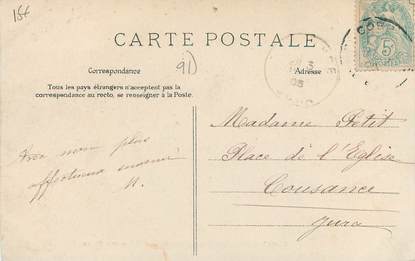 15€
CARTE POSTALE
91)
Correspondance
Adresse
Tous les pays étrangers n'acceptent pas la
correspondance au recto, se renseigner à la Poste.
Madame Petit
Place de l'Eglise
Cousance
Jura
Avec mon plus
affectueux
5